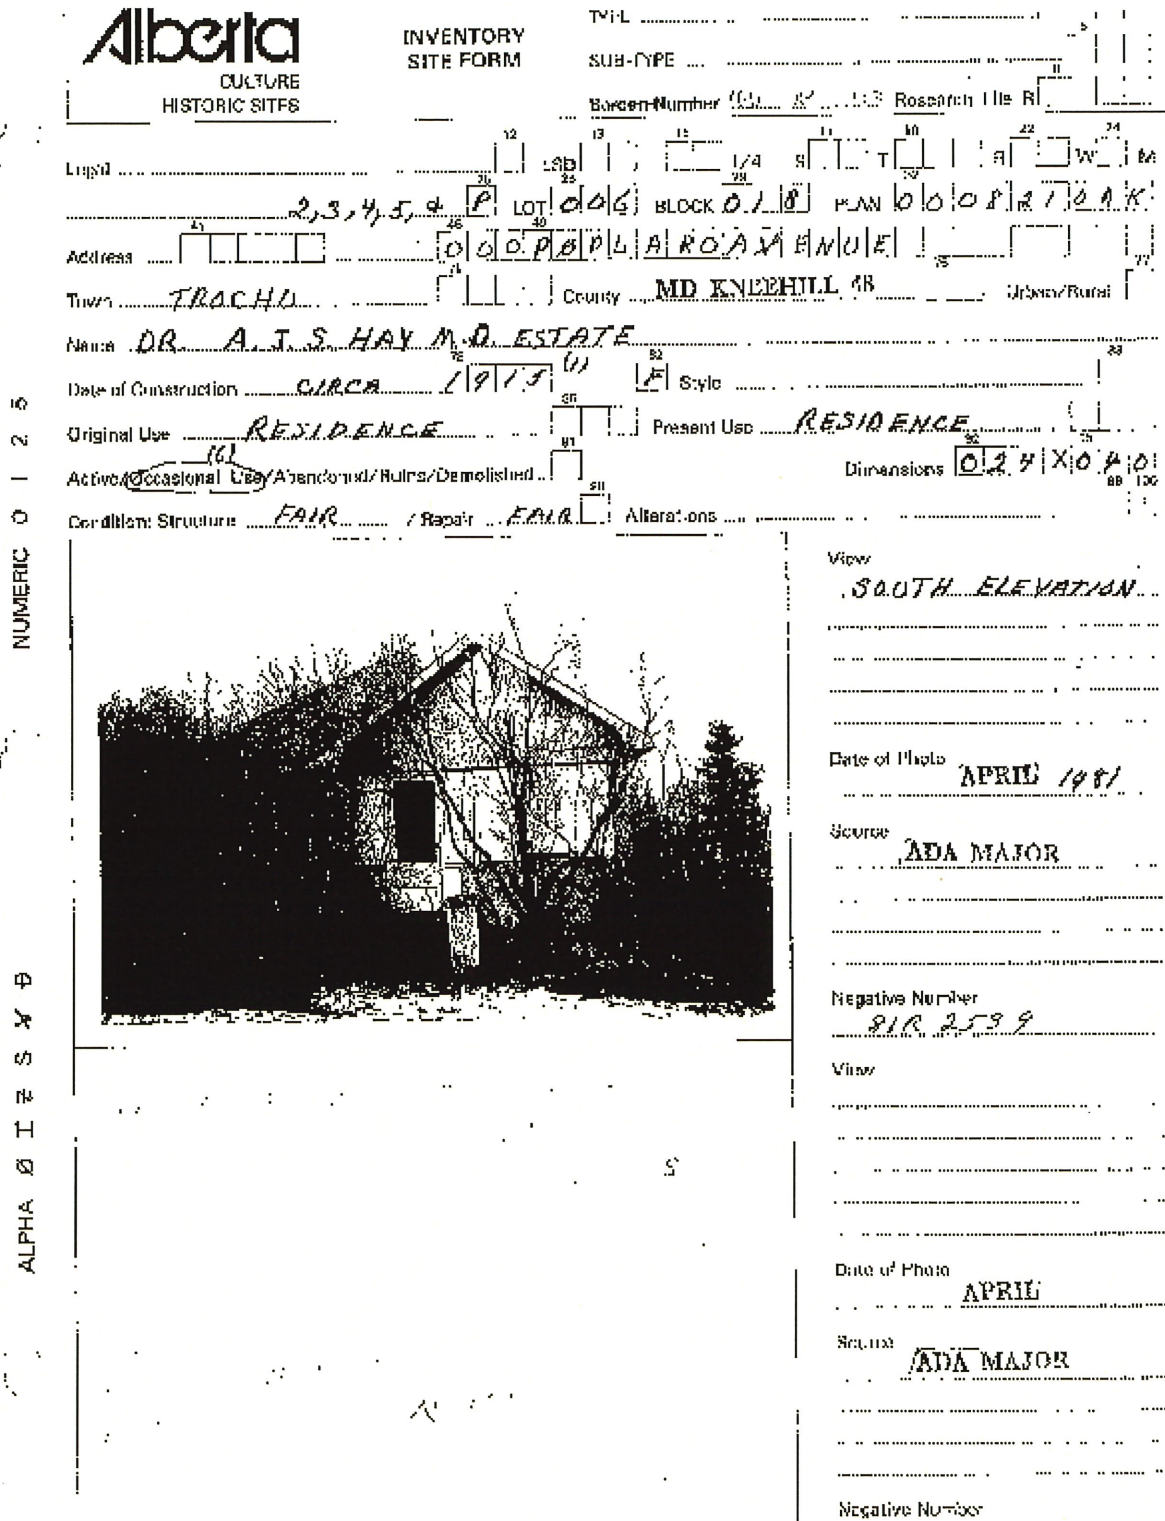 Alberta
CULTURE
HISTORIC SITES
INVENTORY
SITE FORM
SUB-TYPE
Borden Number Research File R
Legal LSD 1/4 S T R W M
2,3,4,5, & P LOT 006 BLOCK 018 PLAN 000821
Address 000 POPLAR AVENUE
Town TROCHU County MD KNEEHILL 48 Urban/Rural
Name DR. A.J.S. HAY M.D. ESTATE
Date of Construction CIRCA 1915 (1) F Style
Original Use RESIDENCE Present Use RESIDENCE
Active/Occasional Use/Abandoned/Ruins/Demolished Dimensions 024 X 040
Condition: Structure FAIR / Repair FAIR Alterations
View
SOUTH ELEVATION
Date of Photo
APRIL 1981
Source
ADA MAJOR
Negative Number
81R 2539
View
Date of Photo
APRIL
Source
ADA MAJOR
Negative Number
NUMERIC 0 1 2 5
ALPHA